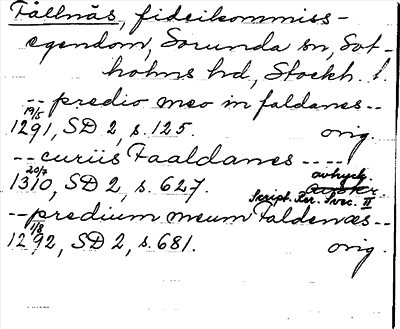 Fållnäs, fideikommiss-
egendom, Sorunda sn, Sot-
holms hd, Stockh. l.
-- predio meo in faldanes --
19/5
1291, SD 2, s. 125. orig.
-- curiis Faaldanes ----
20/7 avtryck.
1310, SD 2, s. 627.
Script. Rer. Svec. II
-- predium meum Faldenæs --
1/8
1292, SD 2, s. 681. orig.